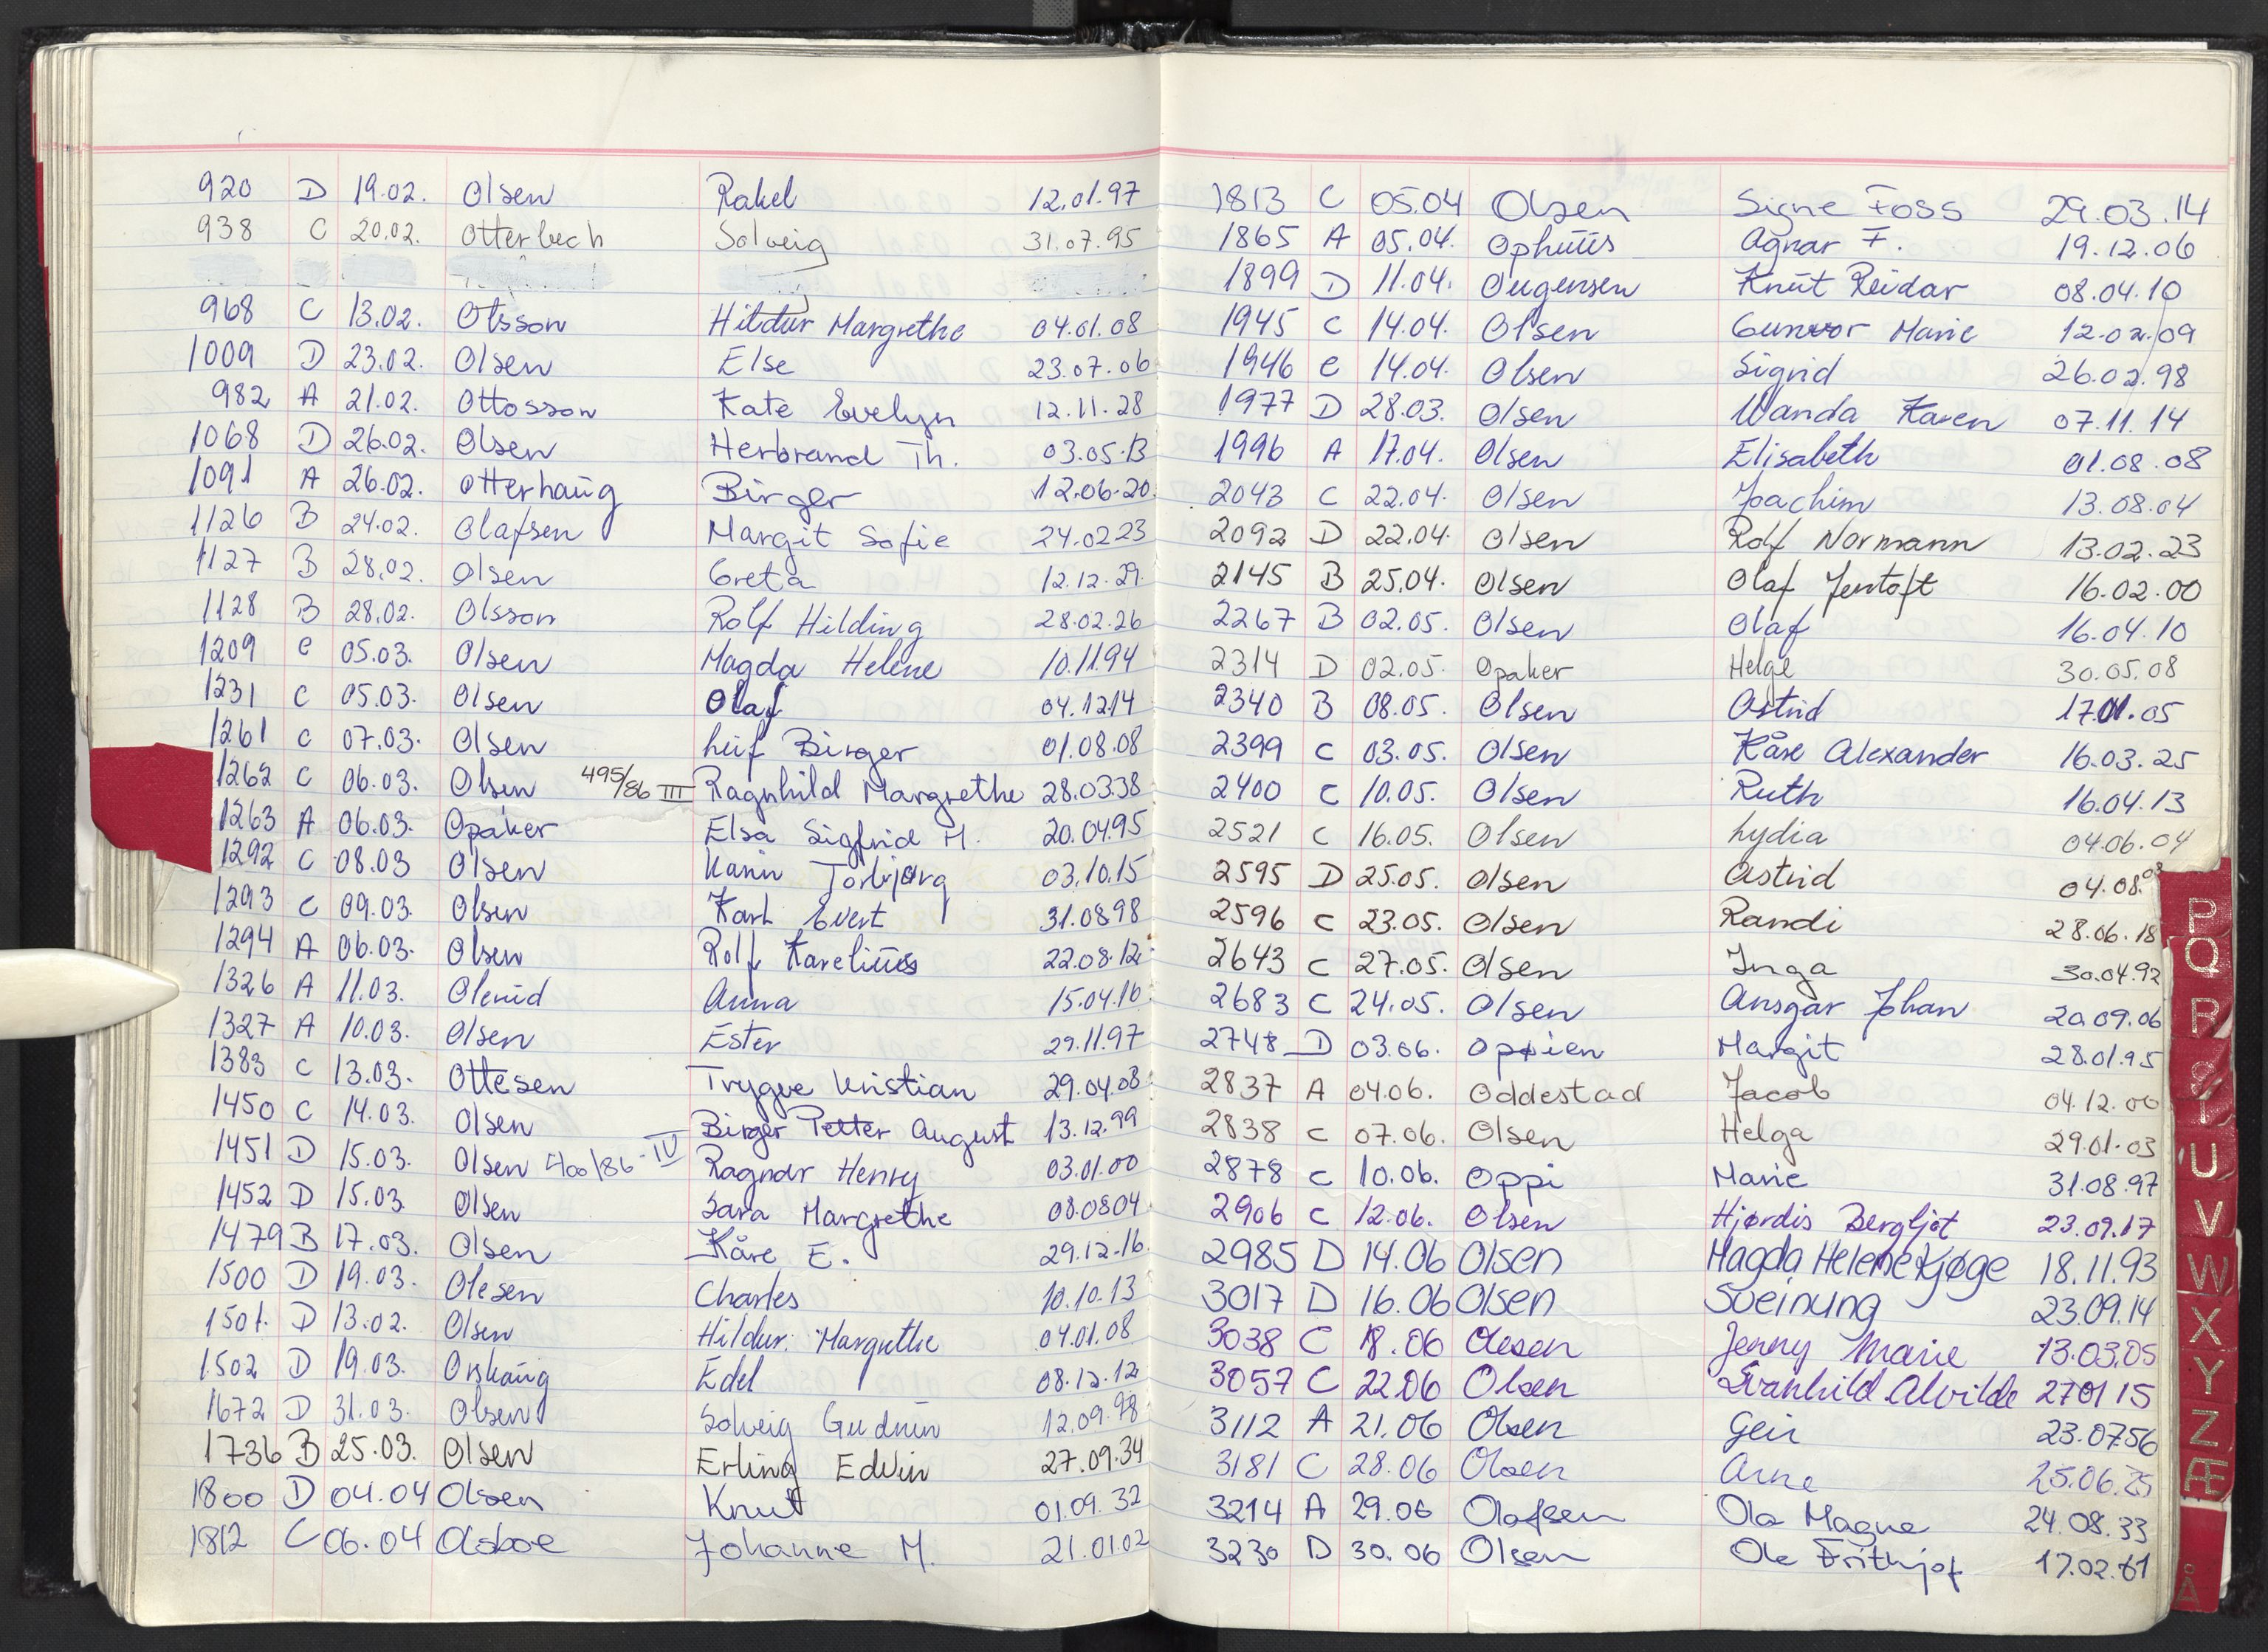 920 D 19.02. Olsen Rakel 12.01.97
938 C 20.02. Otterbech Solveig 31.07.95
968 C 13.02. Olsson Hildur Margrethe 04.01.08
1009 D 23.02. Olsen Else 23.07.06
982 A 21.02. Ottosson Kate Evelyn 12.11.28
1068 D 26.02. Olsen Herbrand Th. 03.05.13
1091 A 26.02. Otterhaug Birger 12.06.20
1126 B 24.02. Olafsen Margit Sofie 24.02 23
1127 B 28.02. Olsen Greta 12.12.29
1128 B 28.02. Olsson Rolf Hilding 28.02.26
1209 C 05.03. Olsen Magda Helene 10.11.94
1231 C 05.03. Olsen Olaf 04.12 14
1261 C 07.03. Olsen Leif Birger 01.08.08
1262 C 06.03. Olsen 495/86 III Ragnhild Margrethe 28.03.38
1263 A 06.03. Opaker Elsa Sigfrid M. 20.04.95
1292 C 08.03 Olsen Karin Torbjørg 03.10.15
1293 C 09.03. Olsen Karl Evert 31.08 98
1294 A 06.03. Olsen Rolf Karelius 22.08.12
1326 A 11.03. Olerud Anna 15.04.16
1327 A 10.03. Olsen Ester 29.11.97
1383 C 13.03. Ottesen Trygve Kristian 29.04.03
1450 C 14.03. Olsen Birger Petter August 13.12.99
1451 D 15.03. Olsen 400/86-IV Ragnar Henry 03.01.00
1452 D 15.03. Olsen Sara Margrethe 08.08 04
1479 B 17.03. Olsen Kåre E. 29.12.16
1500 D 19.03. Olesen Charles 10.10.13
1501. D 13.02. Olsen Hildur Margrethe 04.01.08
1502 D 19.03. Orskaug Edel 08.12.12
1672 D 31.03. Olsen Solveig Gudrun 12.09.98
1736 B 25.03. Olsen Erling Edvin 27.09.34
1800 D 04.04 Olsen Knut 01.09.32
1812 C 06.04 Olsboe Johanne M. 21.01.02
1813 C 05.04 Olsen Signe Foss 29.03.14
1865 A 05.04. Ophuus Agnar F. 19.12.06
1899 D 11.04. Ougensen Knut Reidar 08.04.10
1945 C 14.04. Olsen Gunvor Marie 12.02.09
1946 C 14.04. Olsen Sigrid 26.02.98
1977 D 28.03. Olsen Wanda Karen 07.11.14
1996 A 17.04. Olsen Elisabeth 01.08.08
2043 C 22.04. Olsen Joachim 13.08.04
2092 D 22.04. Olsen Rolf Normann 13.02.23
2145 B 25.04. Olsen Olaf Jentoft 16.02.00
2267 B 02.05. Olsen Olaf 16.04.10
2314 D 02.05. Opaker Helge 30.05.08
2340 B 08.05. Olsen Astrid 17.01.05
2399 C 03.05. Olsen Kåre Alexander 16.03.25
2400 C 10.05. Olsen Ruth 16.04.13
2521 C 16.05. Olsen Lydia 04.06.04
2595 D 25.05. Olsen Astrid 04.08.03
2596 C 23.05. Olsen Randi 28.06.18
2643 C 27.05. Olsen Inga 30.04.92
2683 C 24.05. Olsen Ansgar Johan 20.09.06
2748 D 03.06. Oppsien Margit 28.01.95
2837 A 04.06. Oddestad Jacob 04.12.00
2838 C 07.06. Olsen Helga 29.01.03
2878 C 10.06. Oppi Marie 31.08.97
2906 C 12.06. Olsen Hjørdis Bergljot 23.09.17
2985 D 14.06 Olsen Magda Helene Kjøge 18.11.93
3017 D 16.06 Olsen Sveinung 23.09.14
3038 C 18.06 Olesen Jenny Marie 13.03.05
3057 C 22.06 Olsen Svanhild Alvilde 27 01 15
3112 A 21.06 Olsen Geir 23.07 56
3181 C 28.06 Olsen Arne 25.06.25
3214 A 29.06 Olafsen Ola Magne 24.08.33
3230 D 30.06 Olsen Ole Frithjof 17.02.61
P
Q
R
S
T
U
V
W
X
Y
Z
Æ
Å